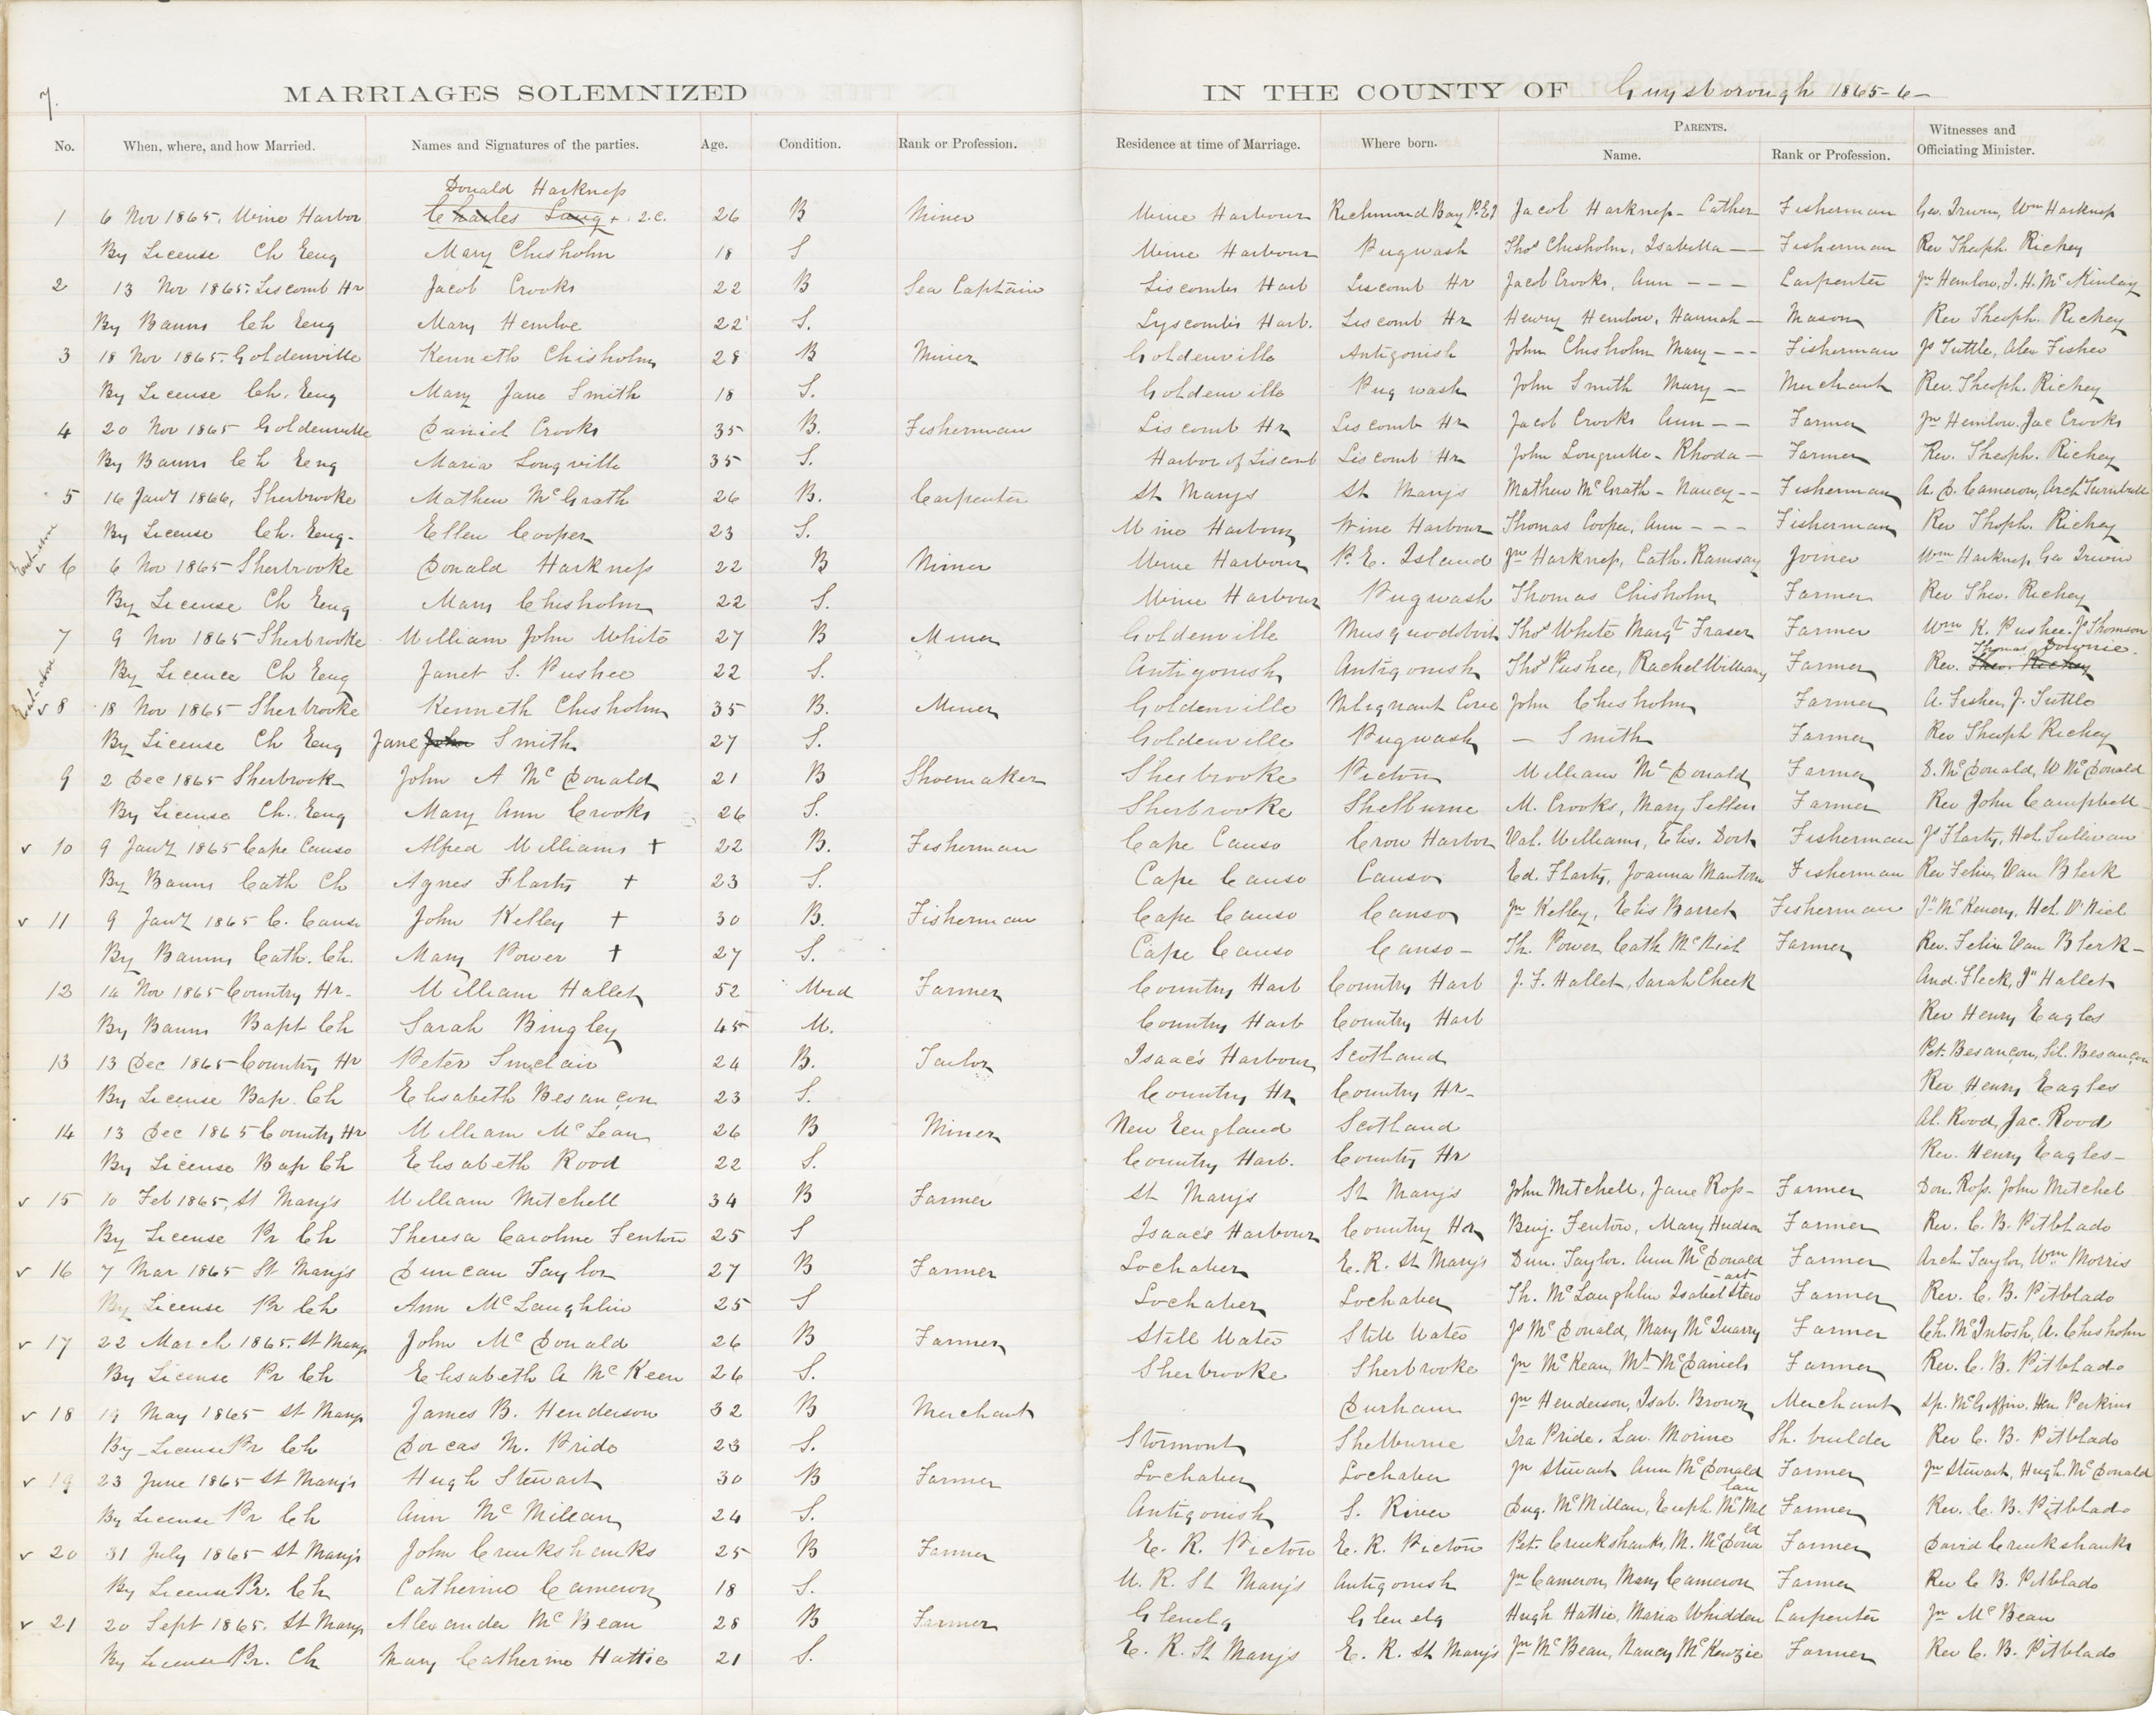 7.
MARRIAGES SOLEMNIZED IN THE COUNTY OF Guysborough 1865-6-
No. When, where, and how Married. Names and Signatures of the parties. Age. Condition. Rank or Profession. Residence at time of Marriage. Where born. PARENTS. Name. Rank or Profession. Witnesses and Officiating Minister.
Donald Harkness
1 6 Nov 1865, Wine Harbor Charles Laug + 2.C. 26 B Miner Wine Harbour Richmond Bay P.E.I Jacob Harkness - Cather Fisherman Geo. Irwin, Wm Harkness
By License Ch Eng Mary Chisholm 18 S Wine Harbour Pugwash Thos Chisholm, Isabella -- Fisherman Rev Theoph. Richey
2 13 Nov 1865. Liscomb Hr Jacob Crooks 22 B Sea Captain Liscombs Harb Liscomb Hr Jacob Crooks, Ann - - - Carpenter Jn Hemlow, J. H. McKinlay
By Banns Ch Eng Mary Hemloe 22 S. Lyscombs Harb. Liscomb Hr Henry Hemlow, Hannah - Mason Rev Theoph. Richey
3 18 Nov 1865 - Goldenville Kenneth Chisholm 28 B Miner Goldenville Antigonish John Chisholm Mary - - - Fisherman Js Tuttle, Alex Fisher
By License Ch. Eng Mary Jane Smith 18 S. Goldenville Pugwash John Smith Mary -- Merchant Rev. Theoph. Richey
4 20 Nov 1865 - Goldenville Daniel Crooks 35 B. Fisherman Liscomb Hr Liscomb Hr Jacob Crooks Ann - - Farmer Jn Hemlow. Jac Crooks
By Banns Ch Eng Maria Longville 35 S. Harbor of Liscomb Liscomb Hr John Longville - Rhoda - Farmer Rev. Theoph. Richey
5 16 Jany 1866, Sherbrooke Mathew McGrath 26 B. Carpenter St Marys St Mary's Mathew McGrath - Nancy - - Fisherman A. D. Cameron, Arch Turnbull
By License Ch. Eng. Ellen Cooper 23 S. Wine Harbour Wine Harbour Thomas Cooper, Ann - - - Fisherman Rev Thoph. Richey
v 6 6 Nov 1865 - Sherbrooke Donald Harkness 22 B Miner Wine Harbour P. E. Island Jno Harkness, Cath. Ramsay Joiner Wm Harkness, Geo Irwin
By License Ch Eng Mary Chisholm 22 S. Wine Harbour Pugwash Thomas Chisholm Farmer Rev Theo. Richey
7 9 Nov 1865 - Sherbrooke William John White 27 B Miner Goldenville Musquodoboit Thos White Margt Fraser Farmer Wm K. Pushee. J. Thomson
By Licence Ch Eng Janet S. Pushee 22 S. Antigonish Antigonish Thos Pushee, Rachel Williams Farmer Rev. Theo. Richey Thomas Downie.
v 8 18 Nov 1865 - Sherbrooke Kenneth Chisholm 35 B. Miner Goldenville Malignant Cove John Chisholm Farmer A. Fisher, J. Tuttle
By License Ch Eng Jane John Smith 27 S. Goldenville Pugwash - Smith Farmer Rev Theoph Richey
9 2 Dec 1865 Sherbrook John A McDonald 21 B Shoemaker Sherbrooke Picton William McDonald Farmer D. McDonald, W McDonald
By License Ch. Eng Mary Ann Crooks 26 S. Sherbrooke Shelburne M. Crooks, Mary Sellers Farmer Rev John Campbell
v 10 9 Jany 1865 Cape Canso Alfred Williams + 22 B. Fisherman Cape Canso Crow Harbor Val. Williams, Elis. Dort Fisherman Js Flarty, Hel. Sullivan
By Banns Cath Ch Agnes Flarty + 23 S. Cape Canso Canso Ed. Flarty, Joanna Manton Fisherman Rev Felix Van Blerk
v 11 9 Jany 1865 C. Canso John Kelley + 30 B. Fisherman Cape Canso Canso Jn Kelley, Elis Barret Fisherman Jn McKenery, Hel. O'Niel
By Banns Cath. Ch. Mary Power + 27 S. Cape Canso Canso - Th. Power Cath McNiel Farmer Rev. Felix Van Blerk -
12 14 Nov 1865 Country Hr - William Hallet 52 Wid Farmer Country Harb Country Harb J. F. Hallet, Sarah Cheek And. Fleck, Jn Hallet
By Banns Bapt Ch Sarah Bingley 45 W. Country Harb Country Harb Rev Henry Eagles
13 13 Dec 1865 - Country Hr Peter Sinclair 24 B. Tailor Isaac's Harbour Scotland Pet. Besançon, Sil. Besançon
By License Bap. Ch Elisabeth Besançon 23 S. Country Hr Country Hr - Rev Henry Eagles
14 13 Dec 1865 Country Hr William McLean 26 B Miner New England Scotland Al. Rood, Jac. Rood
By License Bap Ch Elisabeth Rood 22 S. Country Harb. Country Hr Rev. Henry Eagles -
v 15 10 Feb 1865, St Mary's William Mitchell 34 B Farmer St Mary's St Mary's John Mitchell, Jane Ross - Farmer Don. Ross. John Mitchel
By License Pr Ch Theresa Caroline Fenton 25 S Isaac's Harbour Country Hr Benj. Fenton, Mary Hudson Farmer Rev. C. B. Pitblado
v 16 7 Mar 1865 - St Mary's Duncan Taylor 27 B Farmer Lochaber E. R. St Mary's Dun. Taylor. Ann McDonald Farmer Arch Taylor, Wm Morris
By License Pr Ch Ann McLaughlin 25 S Lochaber Lochaber Th. McLaughlin Isabel Stew -art Farmer Rev. C. B. Pitblado
v 17 22 March 1865. St Marys John McDonald 26 B Farmer Still Water Still Water Js McDonald, Mary McQuarry Farmer Ch. McIntosh, A. Chisholm
By License Pr Ch Elisabeth A McKeen 26 S. Sherbrooke Sherbrooke Jn McKean, Mt McDaniels Farmer Rev. C. B. Pitblado
v 18 19 May 1865 St Marys James B. Henderson 32 B Merchant Durham Jn Henderson, Isab. Brown Merchant Sp. McGiffin. Hen Perkins
By License Pr Ch Dorcas M. Pride 23 S. Stormont Shelburne Ira Pride. Lav. Morine Sh. builder Rev C. B. Pitblado
v 19 23 June 1865 St Mary's Hugh Stewart 30 B Farmer Lochaber Lochaber Jn Stewart Ann McDonald Farmer Jn Stewart, Hugh McDonald
By License Pr Ch Ann McMillan 24 S. Antigonish S. River Dug. McMillan, Euph. McMil lan Farmer Rev. C. B. Pitblado
v 20 31 July 1865 St Mary's John Cruikshanks 25 B Farmer E. R. Picton E. R. Picton Pet. Cruikshanks, M. McDona ld Farmer David Cruikshanks
By License Pr. Ch Catherine Cameron 18 S. W. R. St Mary's Antigonish Jn Cameron, Mary Cameron Farmer Rev C B. Pitblado
v 21 20 Sept 1865. St Marys Alexander McBean 28 B Farmer Glenelg Glenelg Hugh Hattie, Maria Whidden Carpenter Jn McBean
By License Pr. Ch Mary Catherine Hattie 21 S. E. R. St Mary's E. R. St Mary's Jn McBean, Nancy McKenzie Farmer Rev C. B. Pitblado